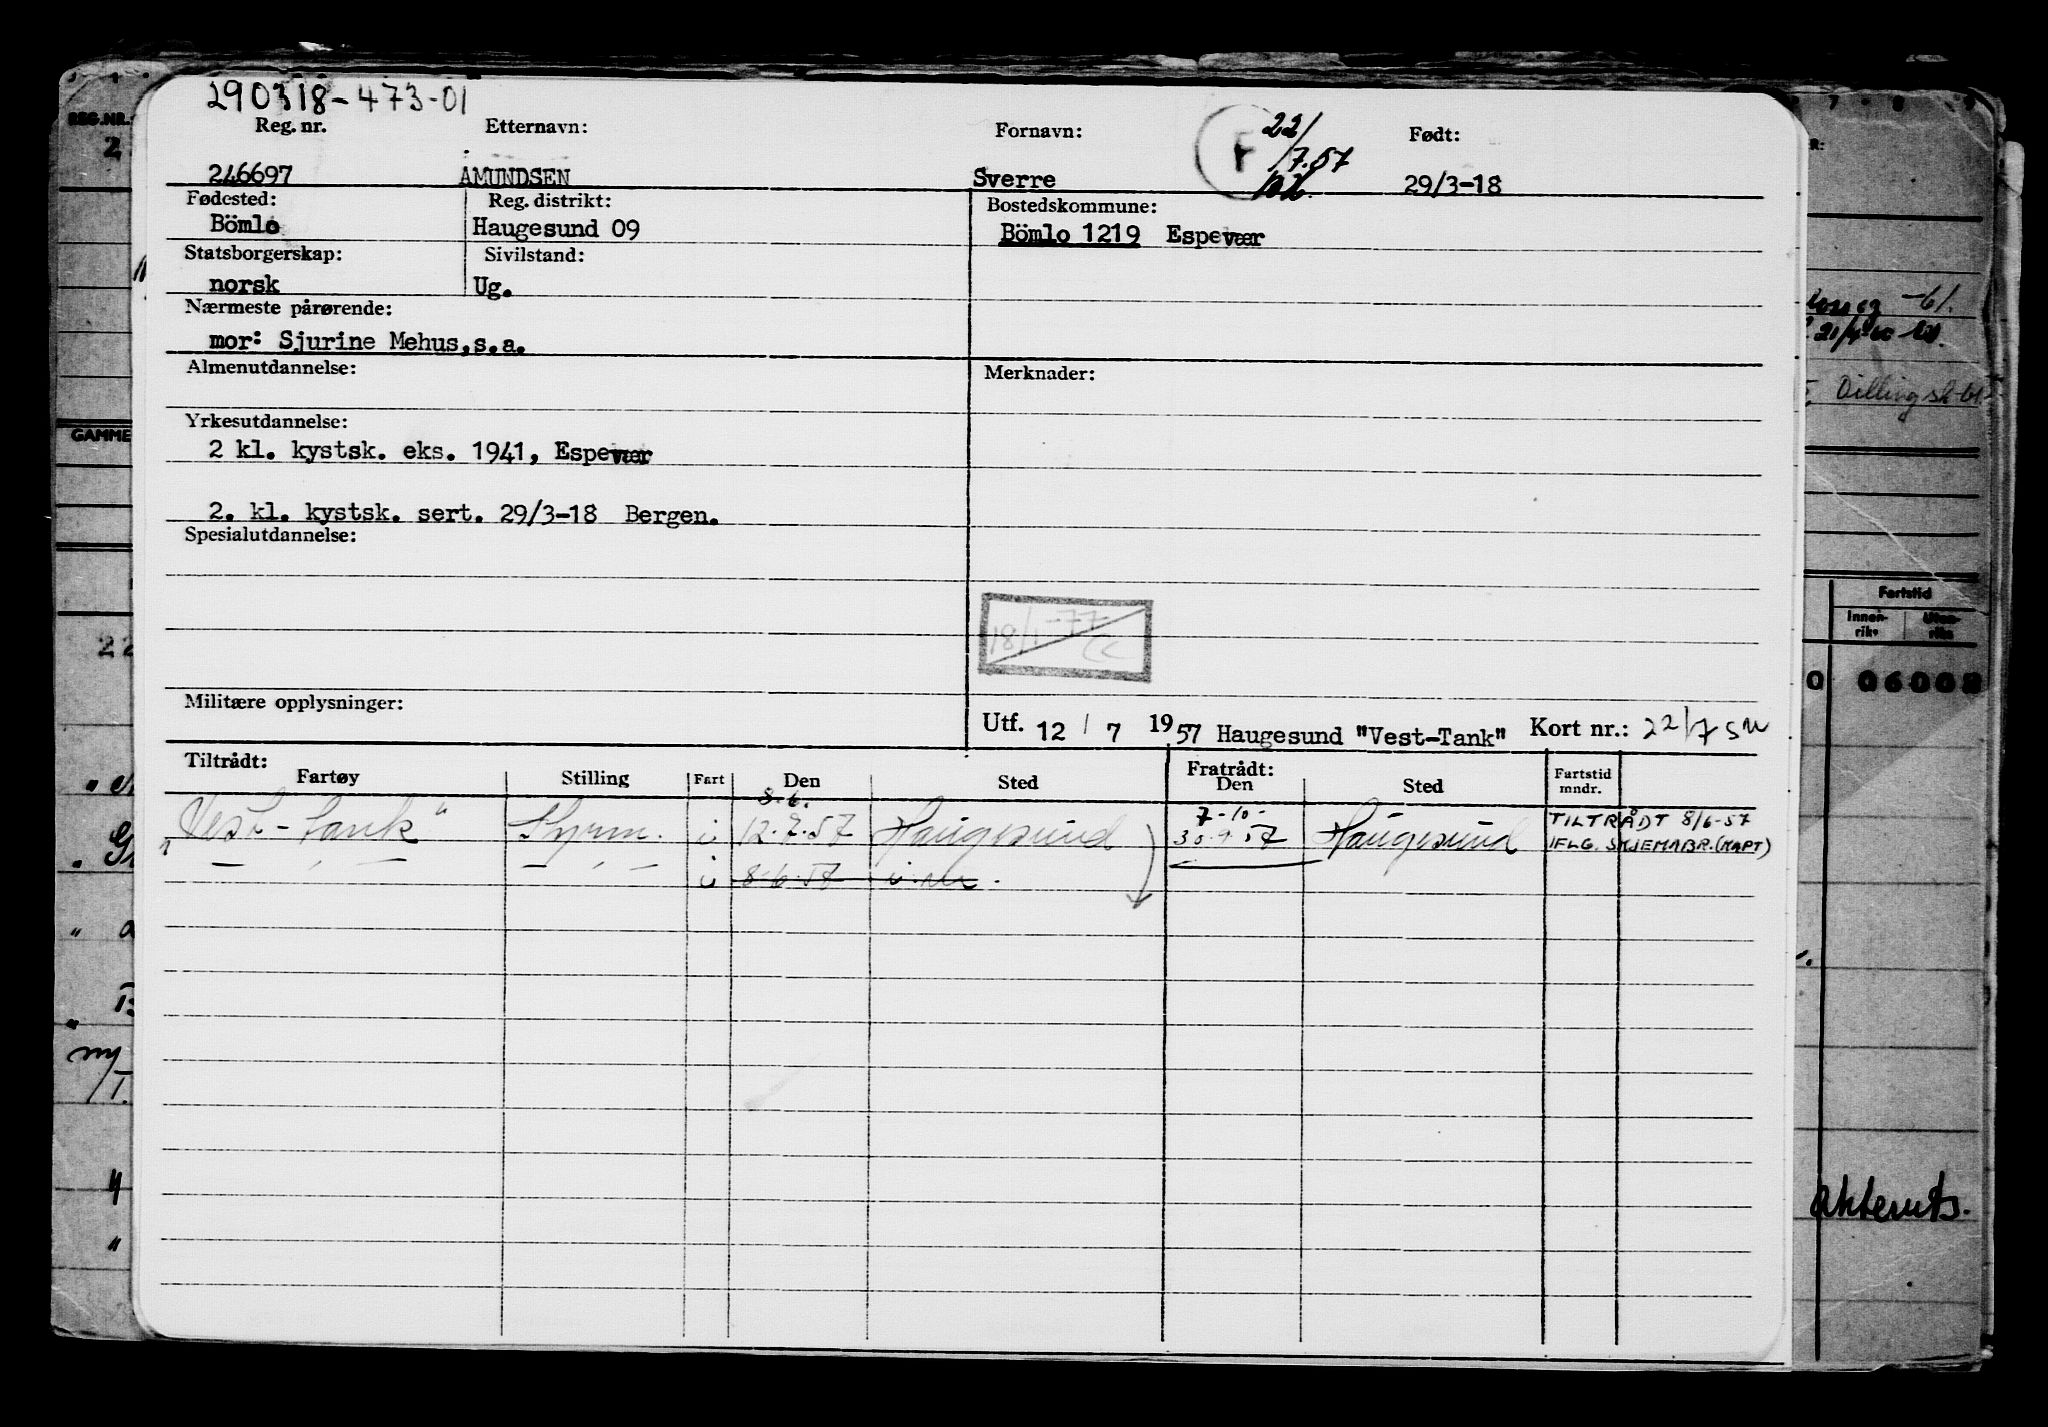 290318-473-01
Reg. nr. Etternavn: Fornavn: Født:
22/7.57
F
246697 AMUNDSEN Sverre 29/3-18
Fødested: Reg. distrikt: Bostedskommune:
Bömlo Haugesund 09 Bömlo 1219 Espevær
Statsborgerskap: Sivilstand:
norsk Ug.
Nærmeste pårørende:
mor: Sjurine Mehus,s.a.
Almenutdannelse: Merknader:
Yrkesutdannelse:
2 kl. kystsk. eks. 1941, Espevær
2. kl. kystsk. sert. 29/3-18 Bergen.
Spesialutdannelse:
18/1-77
Militære opplysninger:
Utf. 12 / 7 1957 Haugesund "Vest-Tank" Kort nr.: 22/7
Tiltrådt: Fratrådt: Fartstid mndr.
Fartøy Stilling Fart Den Sted Den Sted
8.6. 7-10-
"Vest-tank" Styrm. i 12.7.57 Haugesund 30.9.57 Haugesund TILTRÅDT 8/6-57
IFLG. SKJEMABR.(KAPT)
i 8.6.57
REG.NR.
2
GAMME
22
ny
7 8 9
-61.
21/4
Fartstid
Innen-riks Uten-riks
0 06008